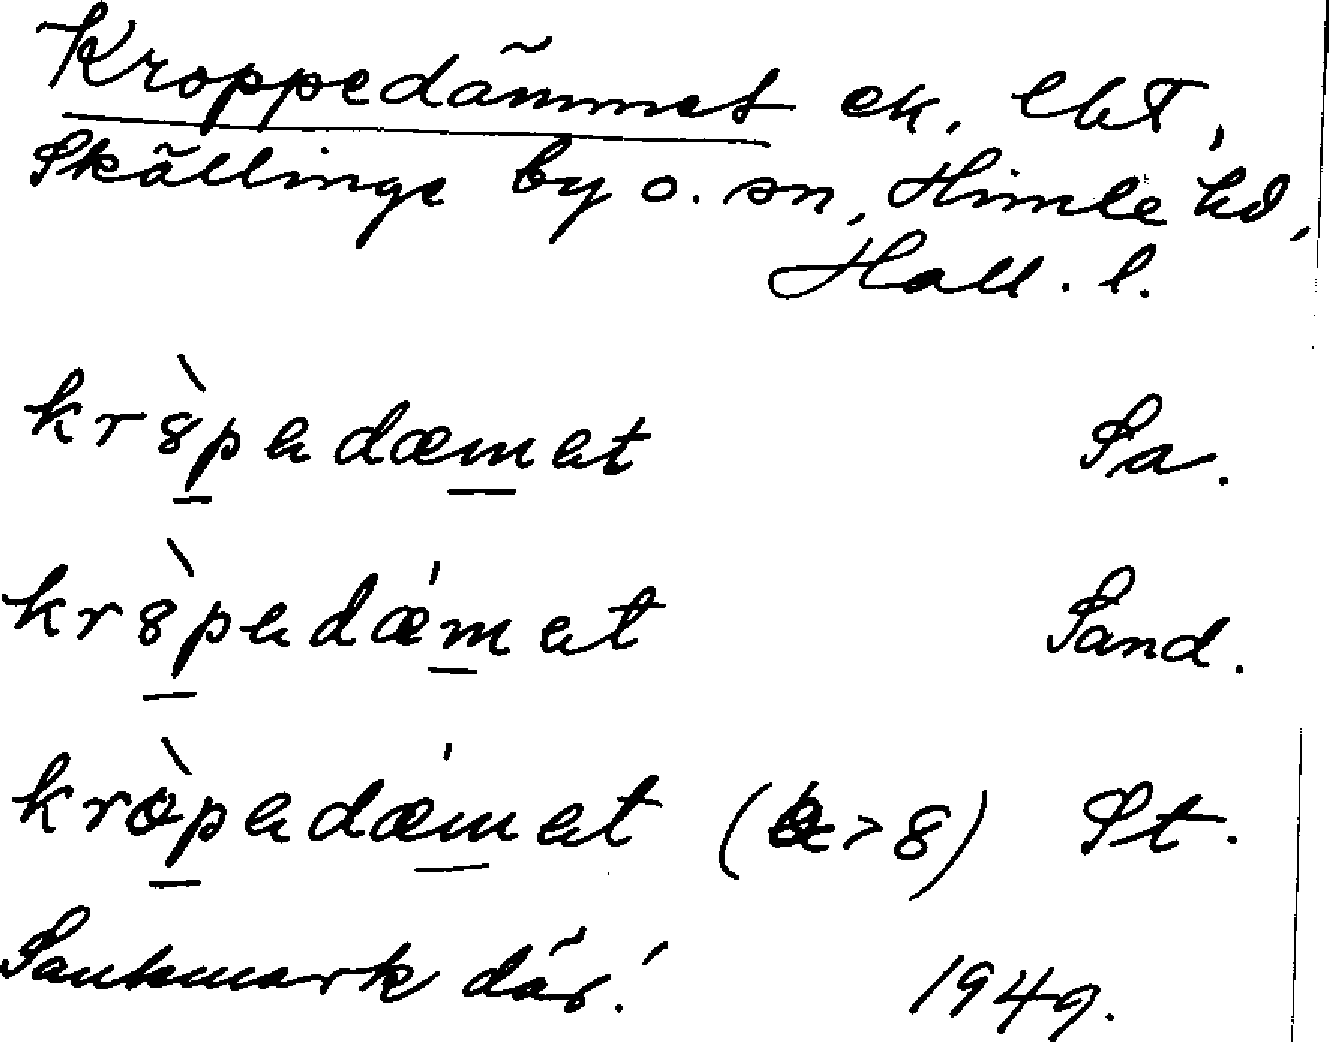 Kroppedämmet ek, lbt,
Skällinge by o. sn, Himle hd,
Hall. l.
kr8̀pedæmet Sa.
kr8̀pedǽmet Sand.
kròpedǽmet ( > 8) St.
Sankmark där! 1949.